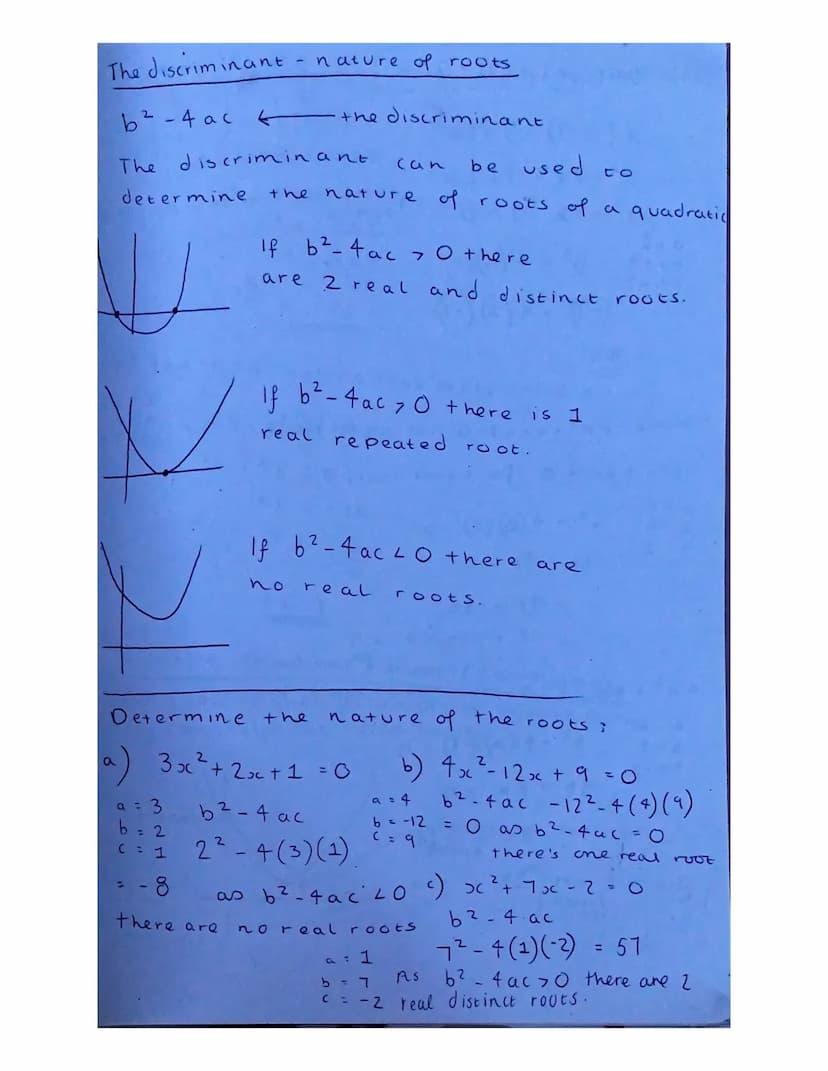 The discriminant - nature of roots
b² - 4ac ← the discriminant
The discriminant can be used to
determine the nature of roots of a quadratic
If b² - 4ac > 0 there
are 2 real and distinct roots.
If b² - 4ac > 0 there is 1
real repeated root.
If b² - 4ac < 0 there are
no real roots.
Determine the nature of the roots:
a) 3x² + 2x + 1 = 0
a = 3
b = 2
c = 1
b² - 4ac
2² - 4(3)(1)
= -8 as b² - 4ac < 0
there are no real roots
b) 4x² - 12x + 9 = 0
a = 4
b = -12
c = 9
b² - 4ac -12² - 4(4)(9)
= 0 as b² - 4ac = 0
there's one real root
c) x² + 7x - 2 = 0
b² - 4ac
a = 1
b = 7
c = -2
7² - 4(1)(-2) = 57
As b² - 4ac > 0 there are 2
real distinct roots.